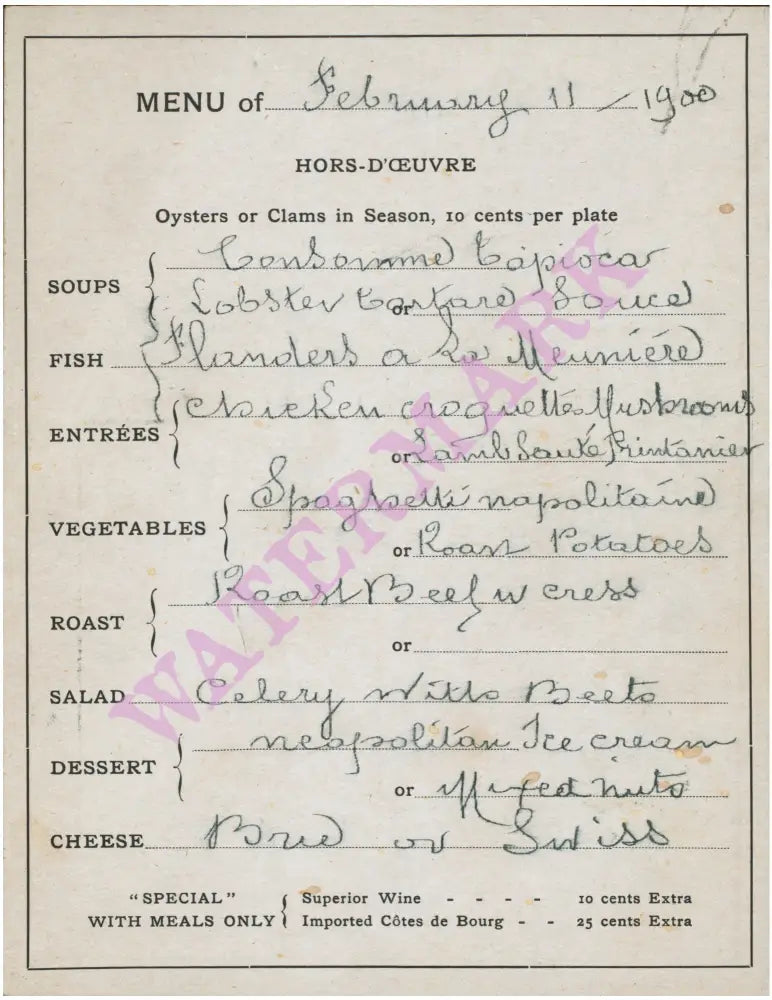 MENU of February 11 / 1900
HORS-D'ŒUVRE
Oysters or Clams in Season, 10 cents per plate
SOUPS Consomme Tapioca
Lobster Tartare Sauce
or
FISH Flanders a La Meuniére
ENTRÉES Chicken croquettes Mushrooms
or Lamb Sauté Printanier
VEGETABLES Spaghetti napolitaine
or Roast Potatoes
ROAST Roast Beef w cress
or
SALAD Celery With Beets
DESSERT neapolitan Ice cream
or Mixed nuts
CHEESE Brie or Swiss
"SPECIAL" Superior Wine - - - - 10 cents Extra
WITH MEALS ONLY Imported Côtes de Bourg - - 25 cents Extra
WATERMARK